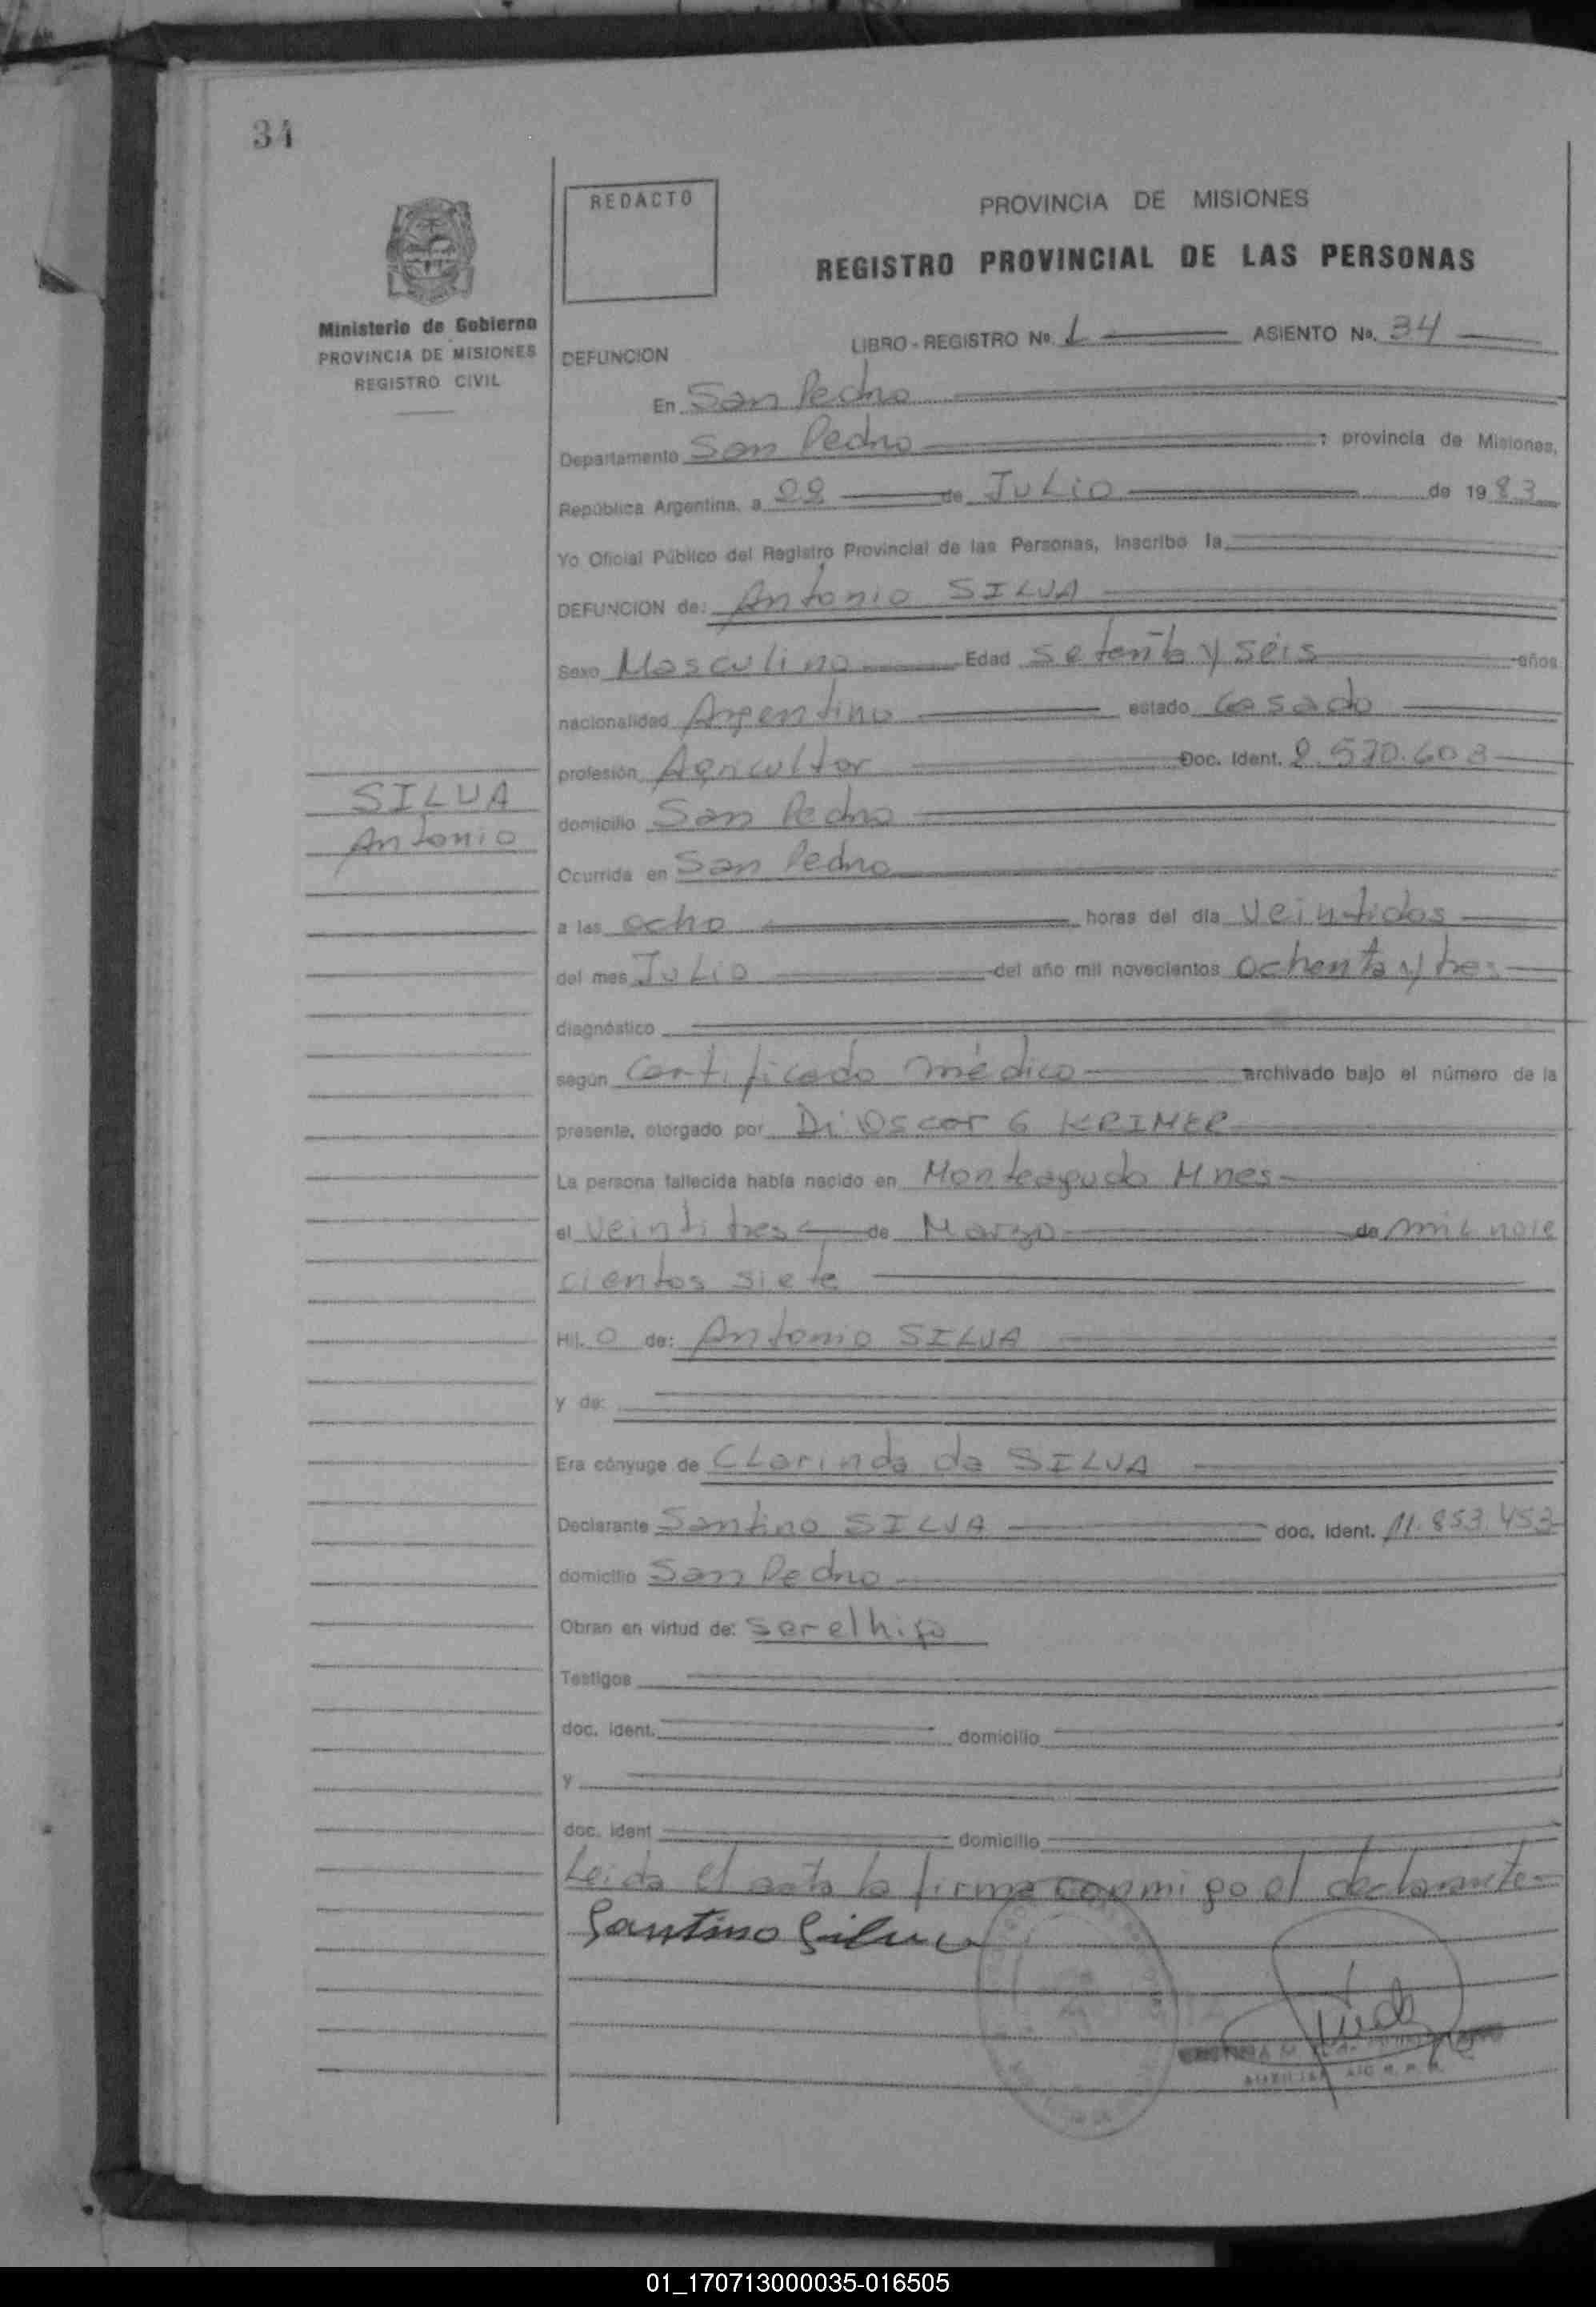 34
REDACTO
PROVINCIA DE MISIONES
REGISTRO PROVINCIAL DE LAS PERSONAS
Ministerio de Gobierno
PROVINCIA DE MISIONES
REGISTRO CIVIL
LIBRO - REGISTRO No. 1 ASIENTO No. 34
DEFUNCION
En San Pedro
Departamento San Pedro ; provincia de Misiones,
República Argentina, a 22 de JULio de 1983
Yo Oficial Público del Registro Provincial de las Personas, inscribo la
DEFUNCION de: Antonio SILVA
Sexo Masculino Edad setenta y seis años
nacionalidad Argentino estado casado
profesión Agricultor Doc. Ident. 2.570.603
SILVA
Antonio
domicilio San Pedro
Ocurrida en San Pedro
a las ocho horas del día veintidos
del mes JuLio del año mil novecientos ochenta y tres
diagnóstico
según certificado médico archivado bajo el número de la
presente, otorgado por Dr Oscar G KRIMER
La persona fallecida había nacido en Monteagudo Mnes
el veintitres de Marzo de mil nove
cientos siete
Hij. o de: Antonio SILVA
y de:
Era cónyuge de CLarinda da SILVA
Declarante Santino SILVA doc. ident. 11.853.453
domicilio San Pedro
Obran en virtud de: ser el hijo
Testigos
doc. ident. domicilio
y
doc. ident domicilio
Leida el acta la firma conmigo el declarante
Santino Silva
AUXILIAR
01_170713000035-016505